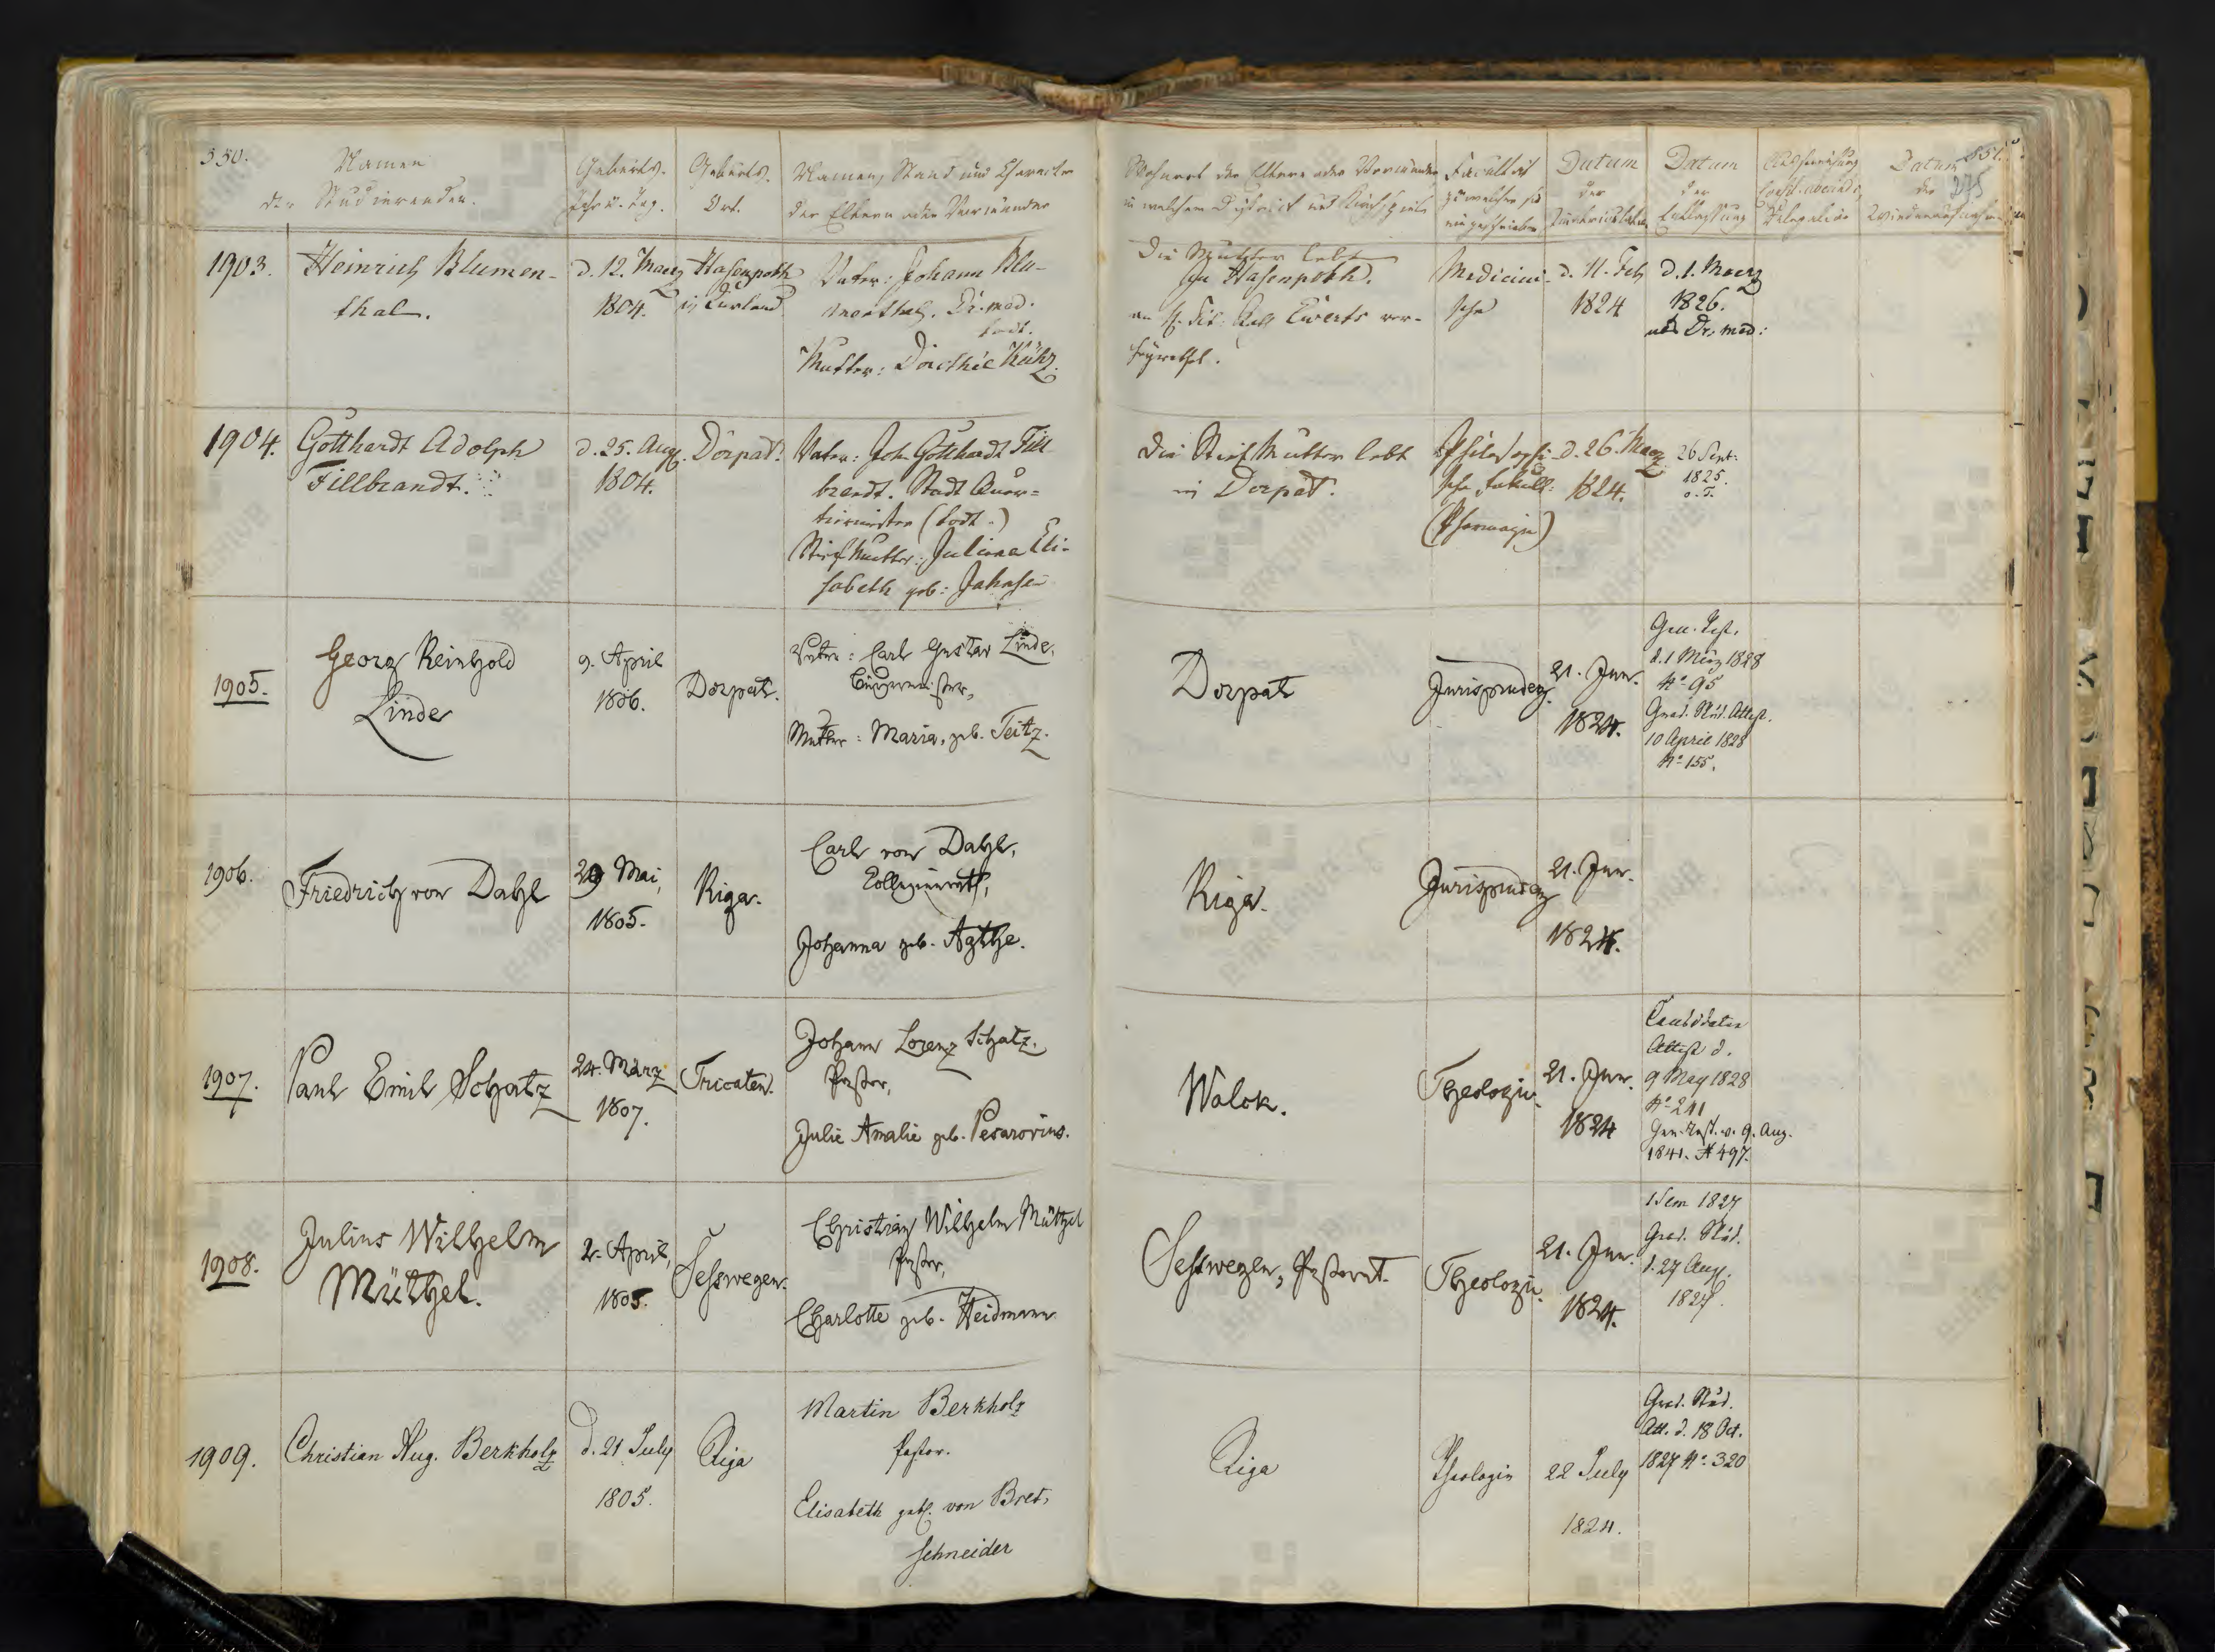 350.
Namen
der Studierenden.
Geburts-
Jahr u. Tag.
Geburts-
Ort.
Namen, Stand und Charakter
der Eltern oder Vormünder
Wohnort der Eltern oder Vormünder,
in welchem District und Kirchspiele
Facultät
zu welcher sie
eingeschrieben
Datum
der
Immatriculation
Datum
der
Entlassung
Datum
der
351.
1903.
Heinrich Blumen-
thal.
d. 12. Maerz
1804.
Hasenpoth
in Curland
Vater: Johann Blu-
menthal. Dr. med.
todt.
Mutter: Dorothée
Die Mutter lebt
in Hasenpoth.
Medicini-
sche
d. 11. Feb
1824
d. 1. Maerz
1826.
als Dr. med:
1904.
Gotthardt Adolph
Fillbrandt.
d. 25. Aug.
1804.
Dorpat.
Vater: Joh. Gotthardt Fill-
brandt. Stadt Quar-
tiermeister (todt.)
Stiefmutter: Juliana Eli-
sabeth geb: Jahnsen
Die Stiefmutter lebt
in Dorpat.
Philosophi-
sche Facult:
(Pharmazie)
d. 26. Maerz
1824.
26 Sept.
1825.
o. T.
1905.
Georg Reinhold
Linde
9. April
1806.
Dorpat.
Vater: Carl Gustav Linde,
Bürgermeister,
Mutter: Maria, geb. Teitz.
Dorpat
Jurisprudenz
21. Jun.
1824.
Gen. Test.
d. 1 März 1828
No 95
Grad. Stud. Attest.
10 April 1828
No 155.
1906.
Friedrich von Dahl
29 Mai,
1805.
Riga.
Carl von Dahl,
Collegienrath,
Johanna geb. Agthe.
Riga.
Jurisprudenz
21. Jun.
1824.
1907.
Paul Emil Schatz
24. März
1807.
Tricaten.
Johann Lorenz Schatz.
Pastor,
Julie Amalie geb. Pesarovius.
Walck.
Theologie.
21. Jun.
1824
Candidaten
Attest d.
9 May 1828
No 241
Gen. Test. v. 9. Aug.
1841. No 497.
1908.
Julius Wilhelm
Müthel.
2. April,
1805.
Sesswegen.
Christian Wilhelm Müthel
Pastor,
Charlotte geb. Heidmann
Sesswegen, Pastorat.
Theologie.
21. Jun.
1824.
1 Sem 1827
Grad. Stud.
d. 27 Aug.
1827.
1909.
Christian Aug. Berkholz
d. 21 July
1805.
Riga
Martin Berkholz
Pastor.
Elisabeth geb. von Bret-
schneider
Riga
Theologie
22 July
1824.
Grad. Stud.
Att. d. 18 Oct.
1827 No 320